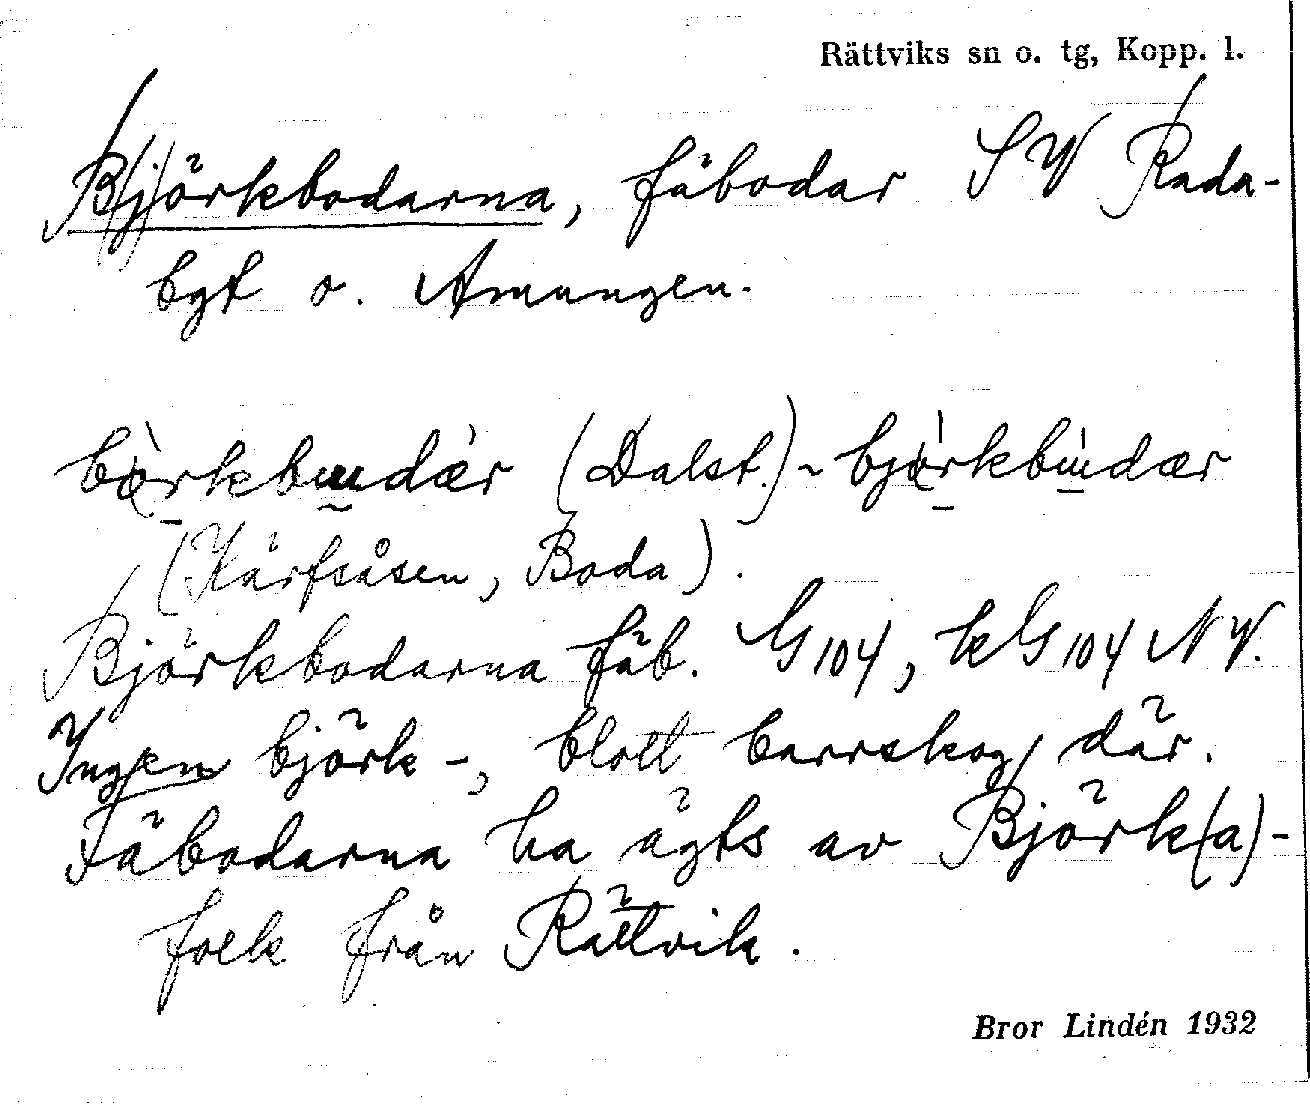 Rättviks sn o. tg, Kopp. l.
B(j)örkbodarna, fäbodar SV Rada-
bgt o. Amungen.
(Dalst.) ~
(Kärfsåsen, Boda).
Björkbodarna fäb. G104, kG104 NV.
Ingen björk-, blott barrskog där.
Fäbodarna ha ägts av Björk(a)-
folk från Rättvik.
Bror Lindén 1932